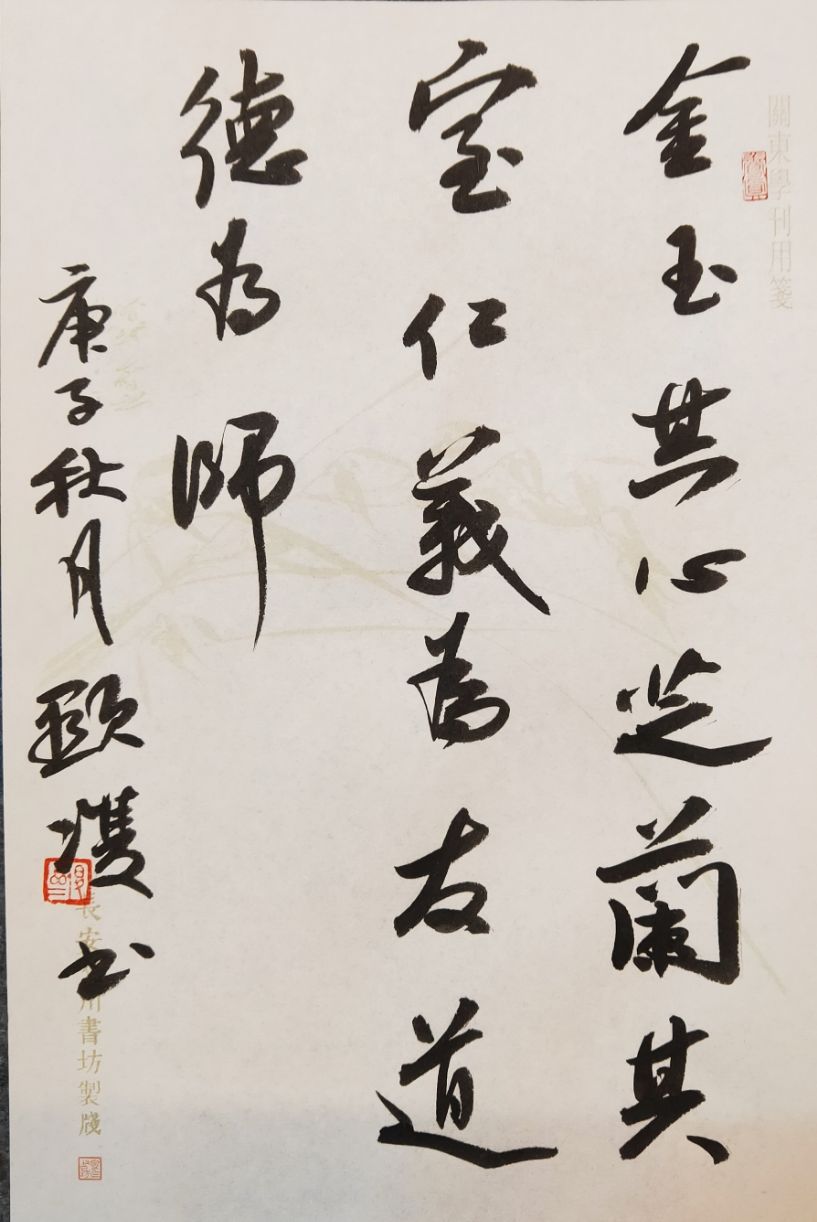 關東學刊用箋
金玉其心芝蘭其
室仁義為友道
德為師
庚子秋月书
長安川書坊製牋